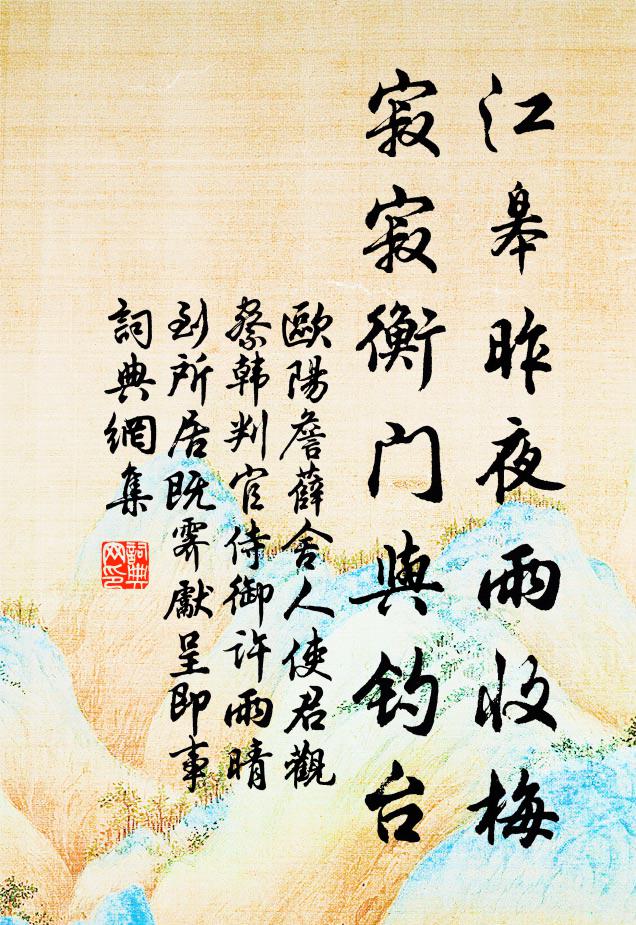 江皋昨夜雨收梅
寂寂衡门與钓台
歐陽詹薛舍人使君觀
察韩判官侍御许雨晴
到所居既霁獻呈即事
詞典網集
詞典
网印